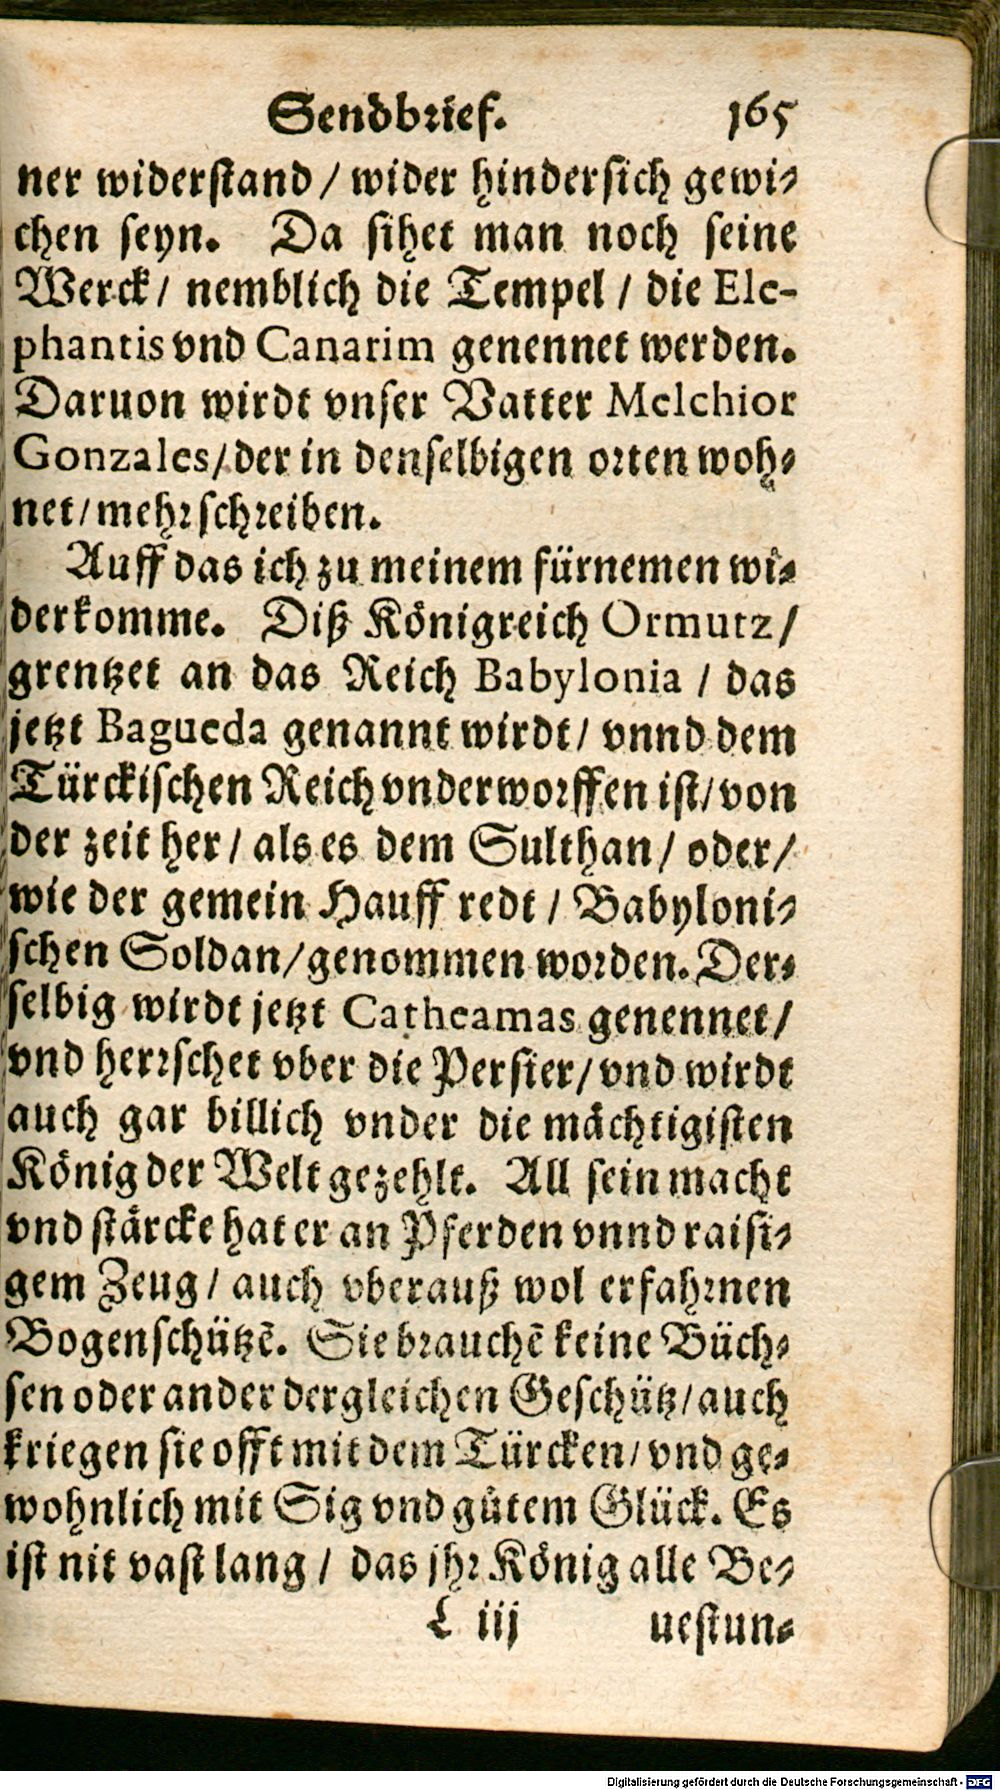 Sendbrief. 165
ner widerstand / wider hindersich gewi-
chen seyn. Da sihet man noch seine
Werck / nemblich die Tempel / die Ele-
phantis vnd Canarim genennet werden.
Daruon wirdt vnser Vatter Melchior
Gonzales / der in denselbigen orten woh-
net / mehr schreiben.
Auff das ich zu meinem fürnemen wi-
derkomme. Diß Königreich Ormutz /
grentzet an das Reich Babylonia / das
jetzt Bagueda genannt wirdt / vnnd dem
Türckischen Reich vnderworffen ist / von
der zeit her / als es dem Sulthan / oder /
wie der gemein Hauff redt / Babyloni-
schen Soldan / genommen worden. Der-
selbig wirdt jetzt Catheamas genennet /
vnd herrschet vber die Persier / vnd wirdt
auch gar billich vnder die mächtigisten
König der Welt gezehlt. All sein macht
vnd stärcke hat er an Pferden vnnd raisi-
gem Zeug / auch vberauß wol erfahrnen
Bogenschützē. Sie brauchē keine Büch-
sen oder ander dergleichen Geschütz / auch
kriegen sie offt mit dem Türcken / vnd ge-
wohnlich mit Sig vnd gůtem Glück. Es
ist nit vast lang / das jhr König alle Be-
L iij uestun-
Digitalisierung gefördert durch die Deutsche Forschungsgemeinschaft - DFG